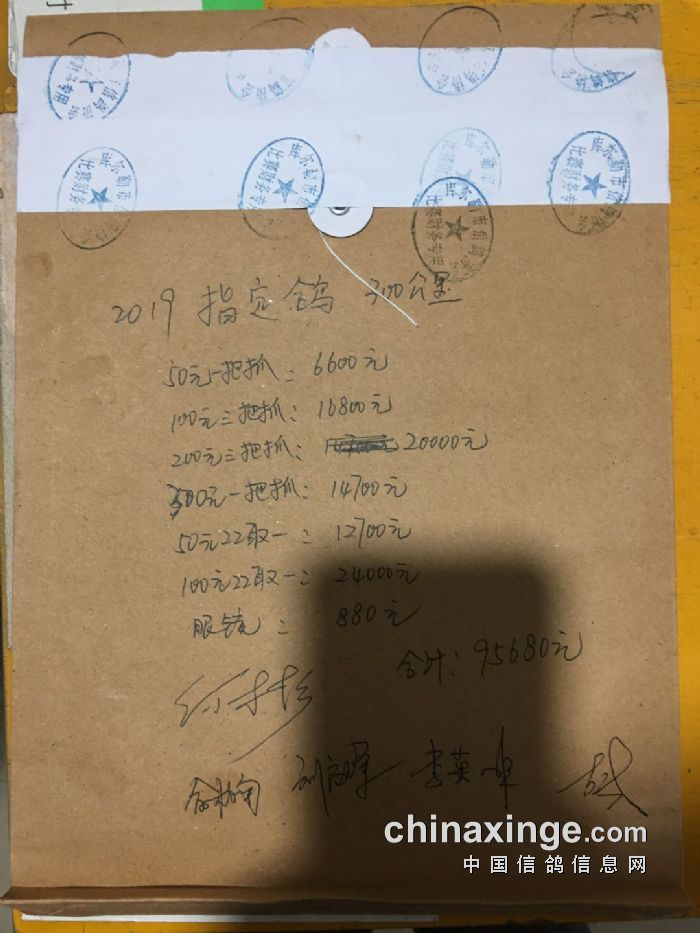 库尔勒市信鸽
比赛财务专用
2019 指定鸽 300公里
50元一把抓: 6600元
100元三把抓: 16800元
200元三把抓: 20000元
300元一把抓: 14700元
50元22取一: 12700元
100元22取一: 24000元
眼镜: 880元
合计: 95680元
李英
chinaxinge.com
中国信鸽信息网